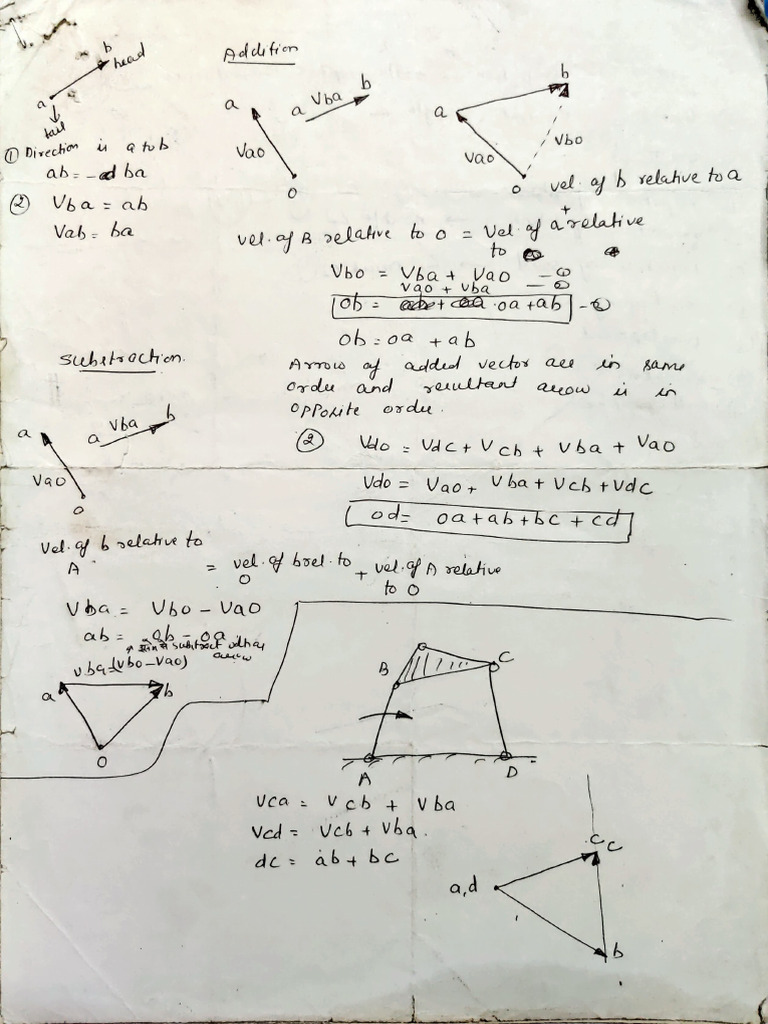 b
head
a
tail
① Direction is a to b
ab = - ba
② Vba = ab
Vab = ba
Addition
a
Vao
o
a Vba b
a
b
Vao
Vbo
o
vel. of b relative to a
+
Vel. of B relative to o = Vel. of a relative
to
Vbo = Vba + Vao - ①
Vao + Vba - ②
ob = oa + ab
ob = oa + ab
Arrow of added vector are in same
order and resultant arrow is in
opposite order.
② Vdo = Vdc + Vcb + Vba + Vao
Vdo = Vao + Vba + Vcb + Vdc
od = oa + ab + bc + cd
Substraction.
a
Vao
o
a Vba b
Vel. of b relative to
A
= vel. of b rel. to
o
+ vel. of A relative
to o
Vba = Vbo - Vao
ab = ob - oa
subtract
arrow
Vba = (Vbo - Vao)
a
b
o
B
C
A
D
Vca = Vcb + Vba
Vcd = Vcb + Vba.
dc = ab + bc
a,d
c
c
b